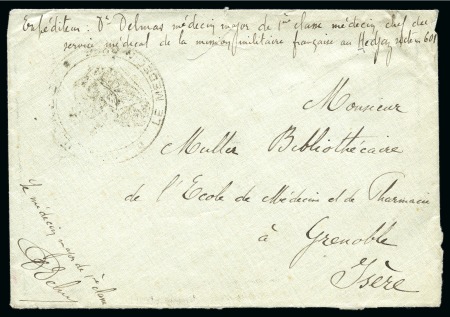 Expéditeur : Dr Delmas médecin major de 1ere classe médecin chef du
service médical de la mission militaire française au Hedjaz secteur 601
LE MEDE
Monsieur
Muller Bibliothécaire
de l'Ecole de Médecine et de Pharmacie
à Grenoble
Isère
Le médecin major de 1ere classe
Delmas